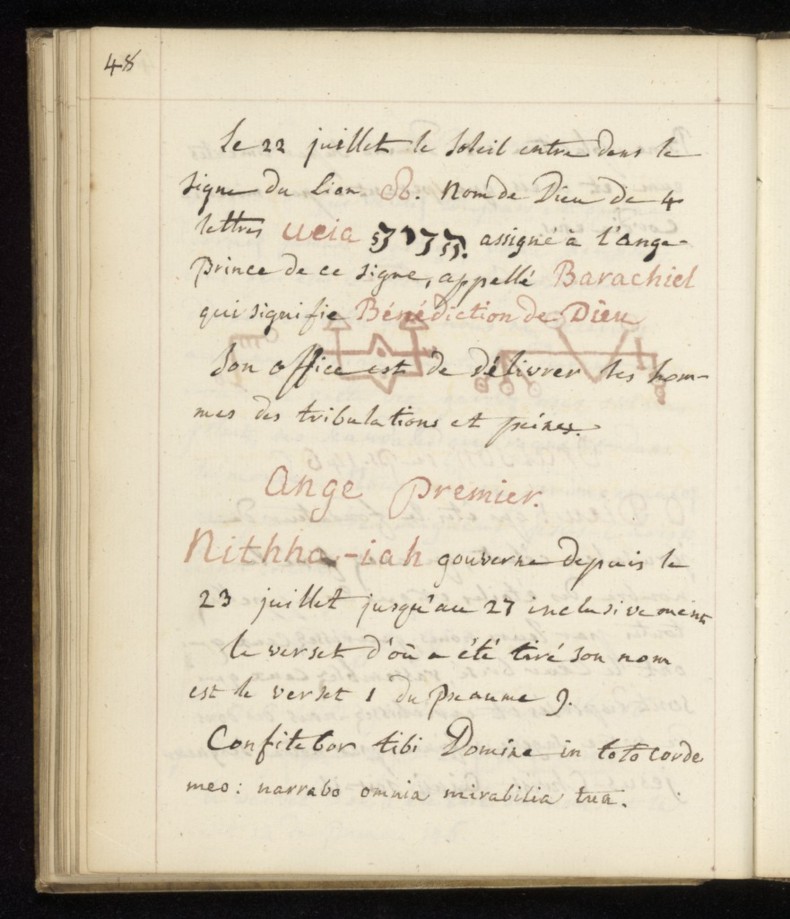 48
Le 22 juillet le Soleil entre dans le
signe du Lion ♌. Nom de Dieu de 4
lettres ueia היוה assigné à l'ange
prince de ce signe, appellé Barachiel
qui signifie Bénédiction de Dieu
Son office est de délivrer les hom-
mes des tribulations et peines.
Ange Premier.
Nithha-iah gouverne depuis le
23 juillet jusqu'au 27 inclusivement
le verset d'où a été tiré son nom
est le verset 1 du Pseaume 9.
Confitebor tibi Domine in toto corde
meo: narrabo omnia mirabilia tua.